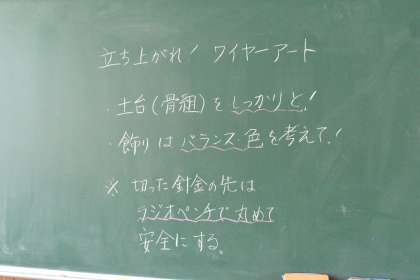 立ち上がれ! ワイヤーアート
・土台(骨組)をしっかりと!
・飾りはバランス・色を考えて!
※ 切った針金の先は
ラジオペンチで丸めて
安全にする。